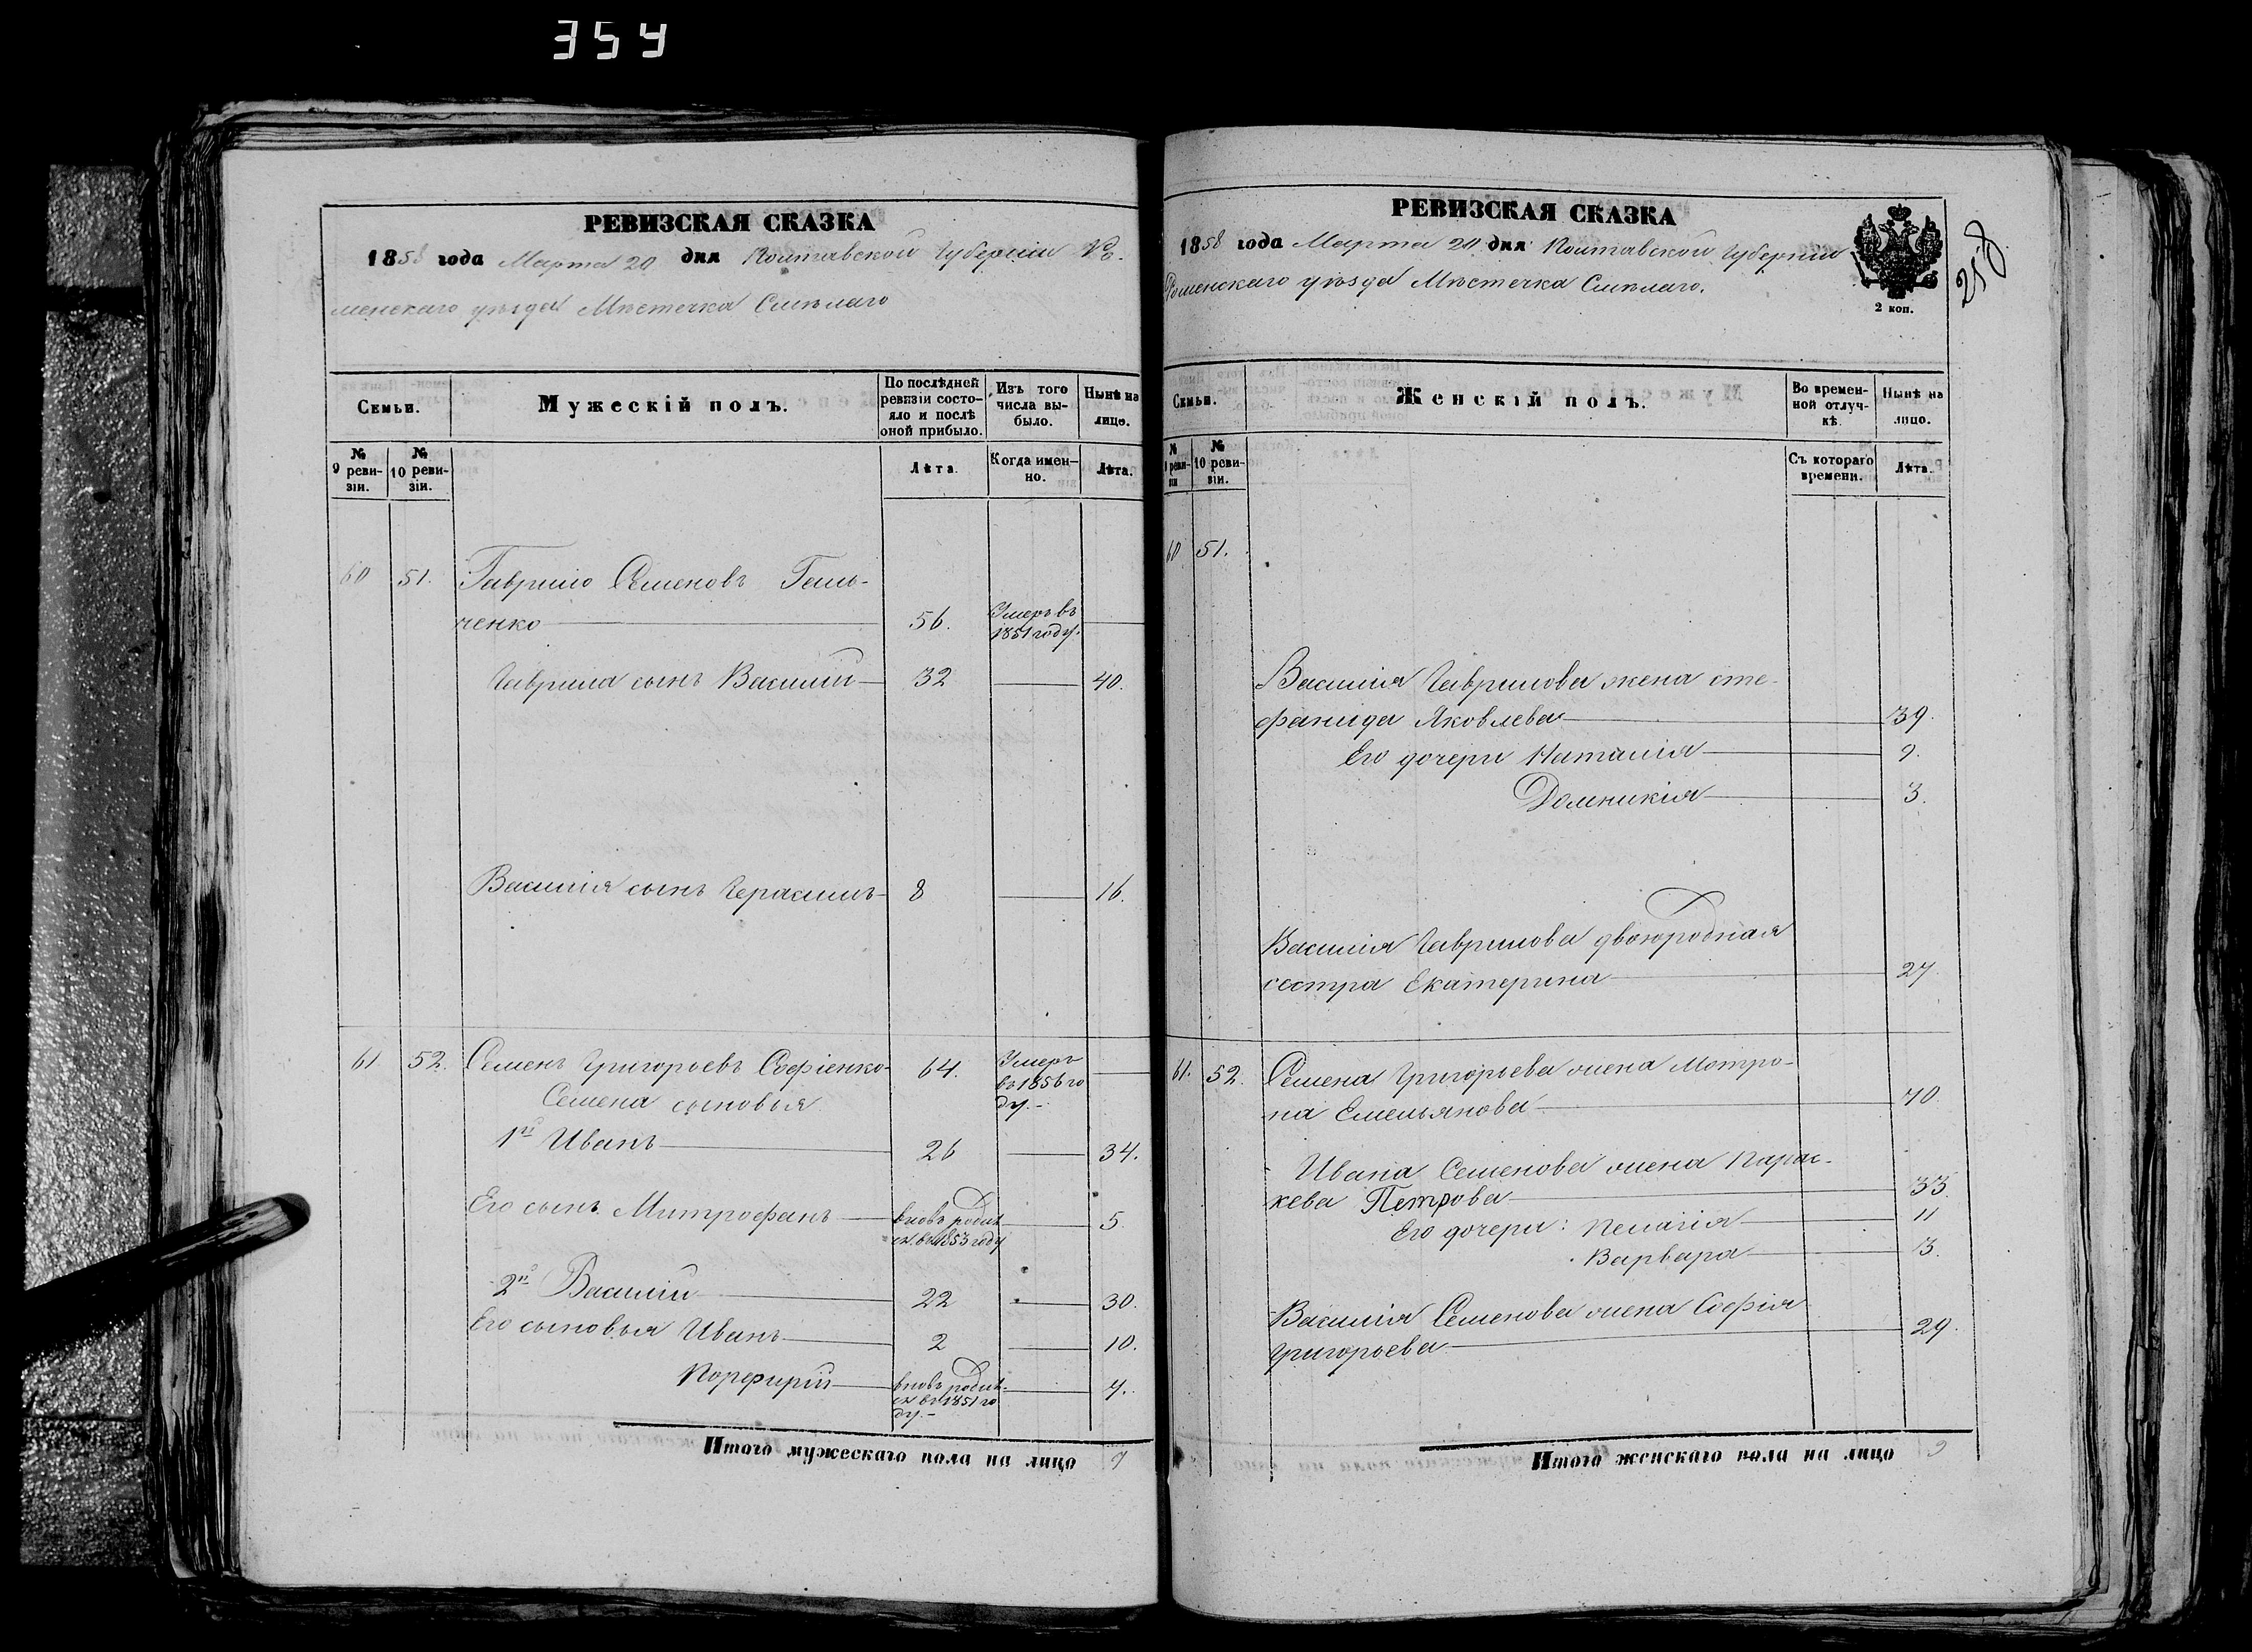 354
РЕВИЗСКАЯ СКАЗКА
1858 года Марта 20 дня Полтавской Губерніи Ро-
менскаго уѣзда Мѣстечка Смѣлаго
Семьи.
Мужескій полъ.
По послѣдней ревизіи состояло и послѣ оной прибыло.
Изъ того числа выбыло.
Нынѣ на лицо.
№ 9 ревизіи.
№ 10 ревизіи.
Лѣта
Когда именно.
Лѣта.
60 51. Гаврило Семеновъ Галь-
ченко 56. Умеръ въ 1851 году.
Гаврила сынъ Василій 32 40.
Василія сынъ Герасимъ 8 16.
61 52. Семенъ Григорьевъ Софіенко 64. Умеръ въ 1856 го ду.-
Семена сыновья
1й Иванъ 26 34.
Его сынъ Митрофанъ вновь родил ся въ 1853 году 5.
2й Василій 22 30.
Его сыновья Иванъ 2 10.
Порфирій вновь родил ся въ 1851 го ду.- 7.
Итого мужескаго пола на лицо 7
РЕВИЗСКАЯ СКАЗКА
1858 года Марта 20 дня Полтавской Губерніи
Роменскаго уѣзда Мѣстечка Смѣлаго.
2 коп.
258.
Семьи.
Женскій полъ.
Во временной отлучкѣ.
Нынѣ на лицо.
№ 9 ревизіи
№ 10 ревизіи.
Съ котораго времени.
Лѣта.
60 51.
Василія Гаврилова жена Сте-
фанида Яковлева 39.
Его дочери Наталія 9.
Домникія 3.
Василія Гаврилова двоюродная
сестра Екатерина 27.
61. 52. Семена Григорьева жена Мотро-
на Емельянова 70
Ивана Семенова жена Парас-
кева Петрова 33.
Его дочери: Пелагія 11
Варвара 3.
Василія Семенова жена Софія
Григорьева 29.
Итого женскаго пола на лицо 9